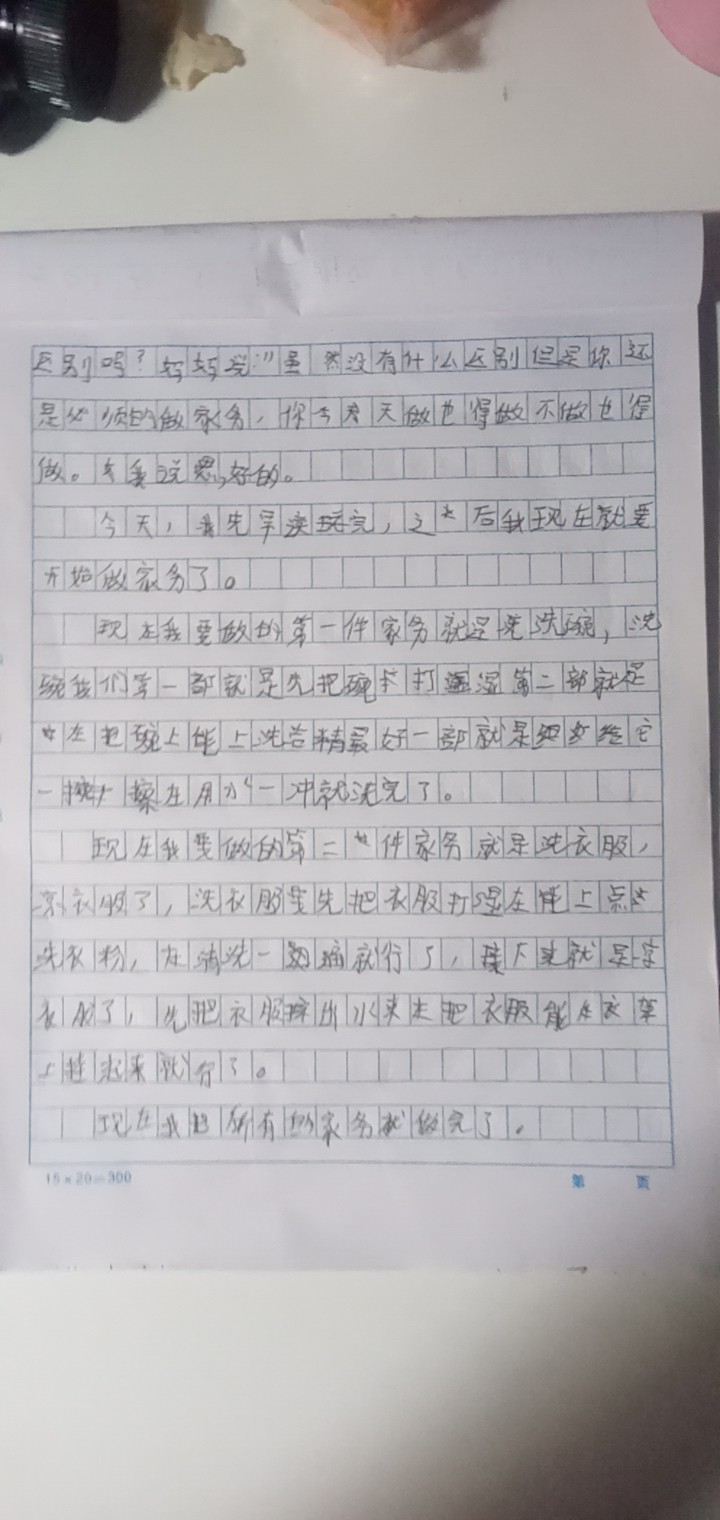 区别吗？妈妈说:"虽然没有什么区别但是你还
是必须的做家务，你今天做也得做不做也得
做。我说 好的。
今天，我先早读完，之后我现在就要
开始做家务了。
现在我要做的第一件家务就是洗洗碗，洗
碗我们第一部就是先把碗打湿第二部就是
在把碗上能上洗 精最好一部就是 给它
一擦 擦在用水一冲就洗完了。
现在我要做的第二件家务就是洗衣服，
凉衣服了，洗衣服要先把衣服打湿在能上点
洗衣粉，在清洗一遍就行了，接下来就是
衣服了，先把衣服 出水来 把衣服能在衣架
上挂起来就行了。
现在我把所有的家务就做完了。
15×20=300
第 页